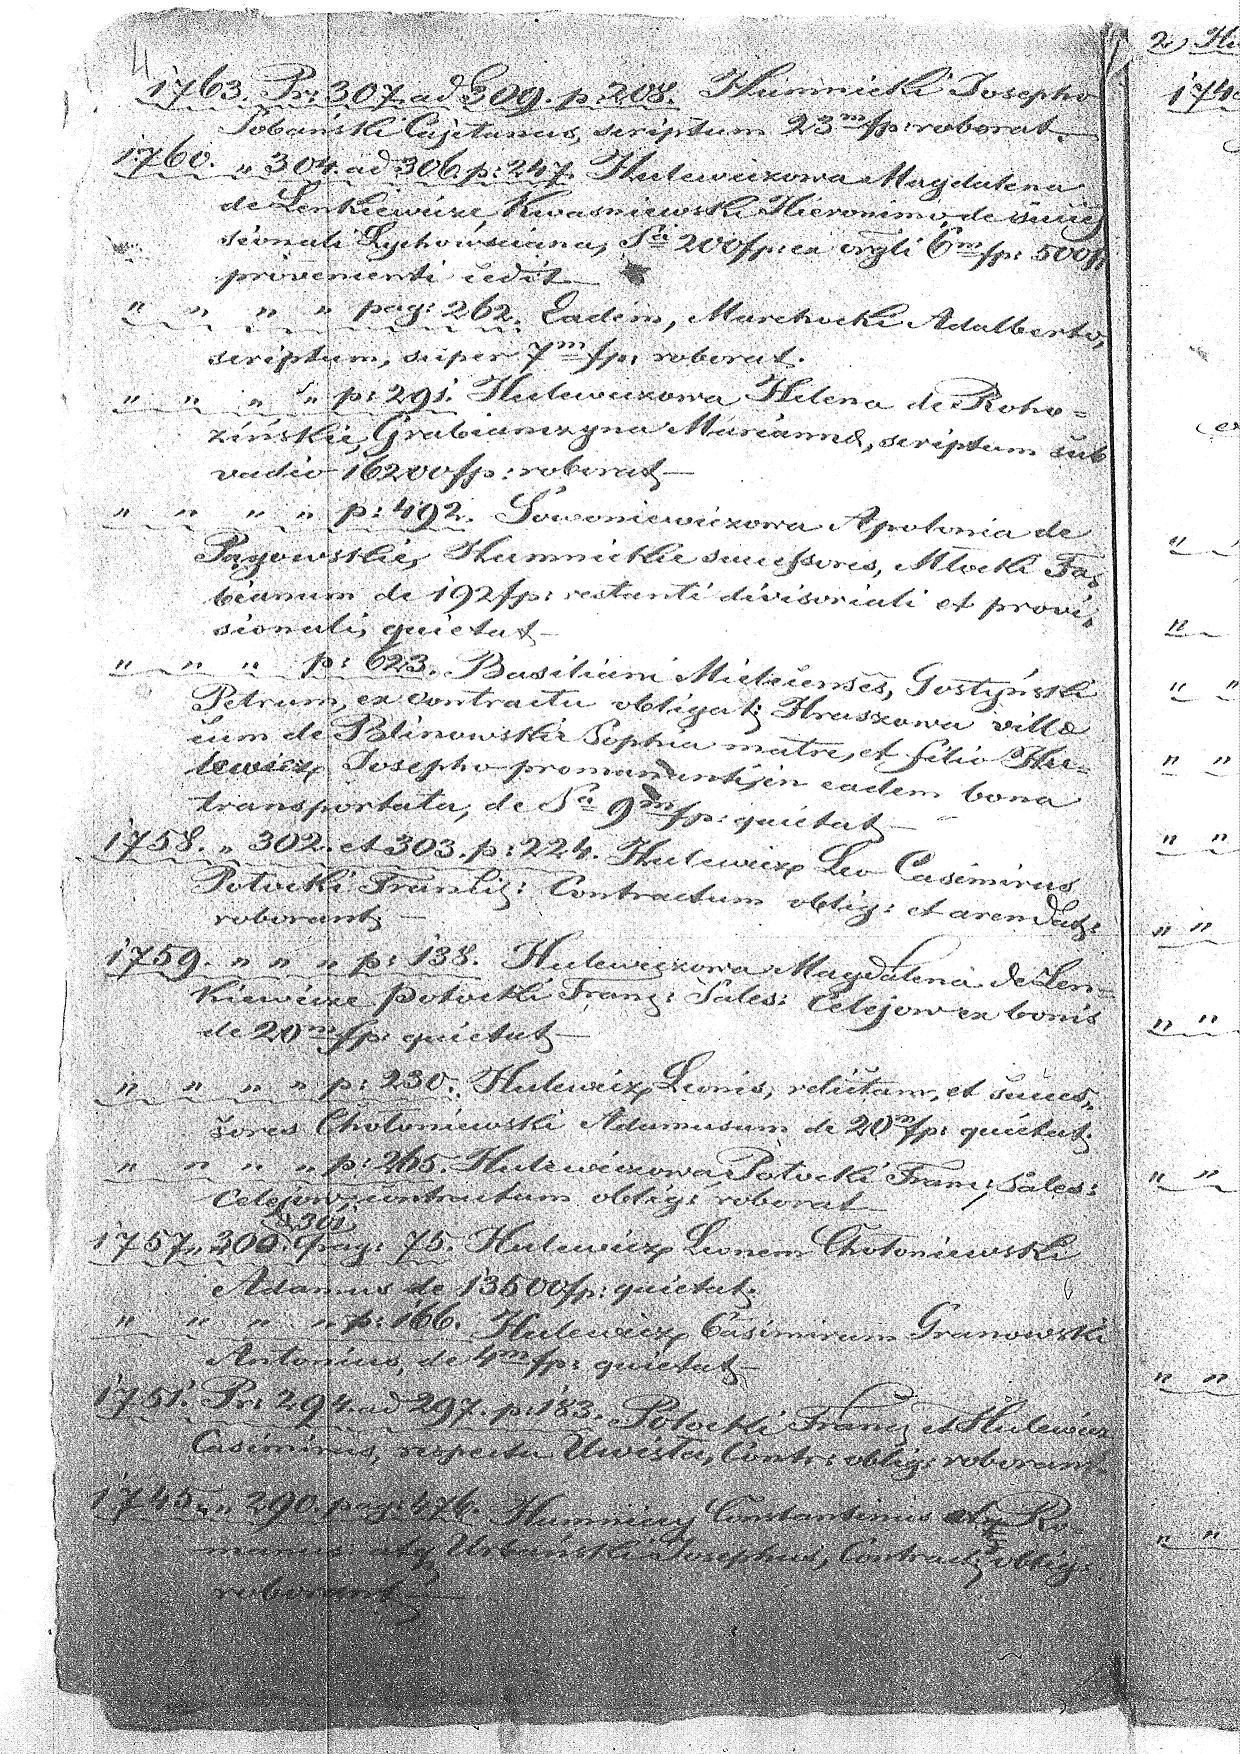 4
1763. Pr: 307. ad 309. p: 208. Humnicki Josepho
Sobański Cajetanus, scriptum 23 m fp: roborat
1760. " 304. ad 306. p: 247. Hulewiczowa Magdalena
de Lenkiewicze Kwasniewski Hieronimo, de succes
sionali Lychowściana, Sa 200 fp: ex orgli 6 m fp: 500 f:
provenienti cedit
" " " " pag: 262. Eadem, Marchocki Adalberto,
scriptum, super 7 m fp: roborat.
" " " " p: 291. Hulewiczowa Helena de Roho=
zińskie, Grabianczyna Marianna, scriptum sub
vadio 16200 fp: roborat
" " " " p: 492. Apolonia de
Humnickie successores, Młocki Fa,
bianum de 192 fp: restanti divisoriali et provi,
sionali, quietat
" " " p: 623. Basiliani Mielcenses, Gostyński
Petrum, ex contractu obligat: Hruszowa villæ
cum de Blinowskie Sophia matre, et filio Hu=
lewicz Josepho promanenti, in eadem bona
transportata, de Sa 9 m fp: quietat
1758. " 302. et 303. p: 224. Hulewicz Leo Casimirus
Potocki Contractum oblig: et arendat:
roborant
1759. " " " p: 138. Hulewiczowa Magdalena de Len=
kiewicze Potocki Franz: Sales: Celejow ex bonis
de 20 m fp: quietat
" " " " p: 230. Hulewicz Leonis, relictam, et succes,
sores Chołoniewski Adamusum de 20 m fp: quietat.
" " " " p: 265. Hulewiczowa Potocki Franc: Sales:
Celejow, contractum oblig: roborat
& 301
1757. " 300. pag: 75. Hulewicz Leonem Chołoniewski
Adamus de 13500 fp: quietat.
" " " " p: 166. Hulewicz Casimirum Granowski
Antonius, de 4 m fp: quietat
1751. Pr: 294. ad 297. p: 183. Potocki Franc: et Hulewicz
Casimirus, respectu Uwisła, Contr: oblig: roborant
1745. " " 290. pag: 476. Humniccy Constantinus atq Ro=
manus atq Urbański Josephus, Contract: oblig:
roborant
2) Hu
174
" "
" "
" "
" "
" "
" "
" "
" "
" "
" "